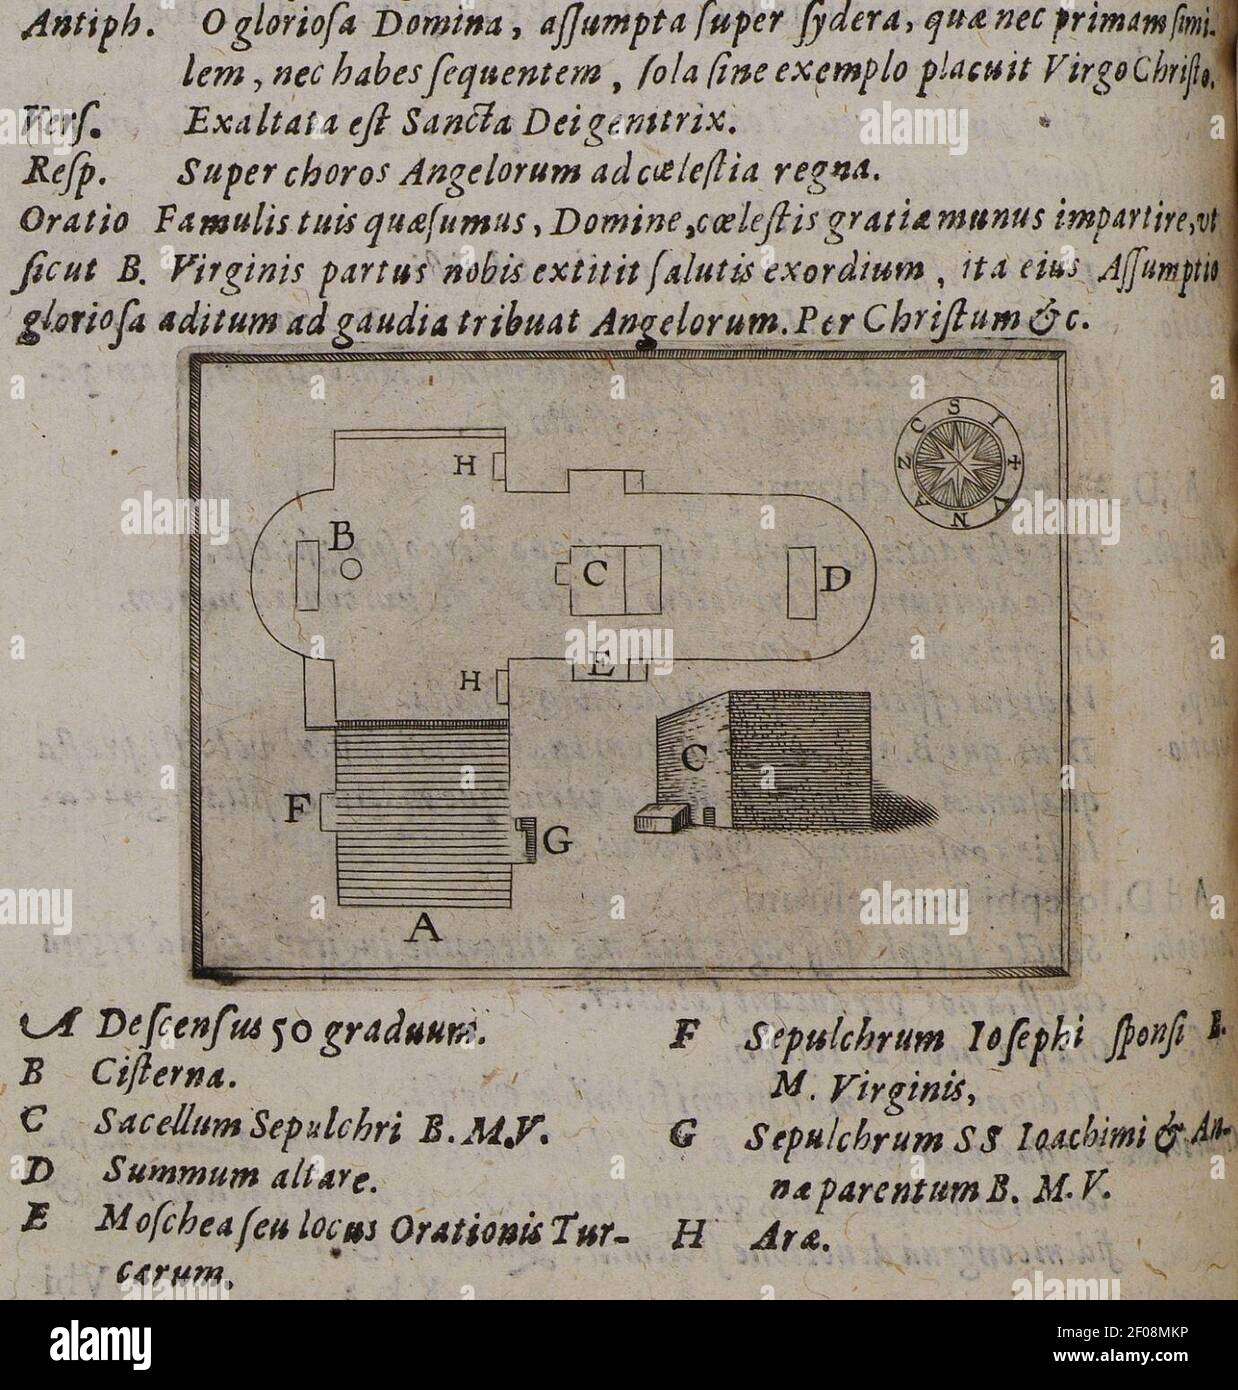 Antiph. O glorioſa Domina, aſſumpta ſuper ſydera, quæ nec primam ſimi-
lem, nec habes ſequentem, ſola ſine exemplo placuit Virgo Chriſto.
Verſ. Exaltata eſt Sancta Dei genitrix.
Reſp. Super choros Angelorum ad cæleſtia regna.
Oratio Famulis tuis quæſumus, Domine, cœleſtis gratiæ munus impartire, ut
ſicut B. Virginis partus nobis extitit ſalutis exordium, ita eius Aſſumptio
glorioſa aditum ad gaudia tribuat Angelorum. Per Chriſtum &c.
S I + V N A Z C
H
B
C
D
H
E
C
F
G
A
A Deſcenſus 50 graduum.
B Ciſterna.
C Sacellum Sepulchri B. M. V.
D Summum altare.
E Moſchea ſeu locus Orationis Tur-
carum.
F Sepulchrum Ioſephi ſponſi B.
M. Virginis,
G Sepulchrum SS Ioachimi & An-
næ parentum B. M. V.
H Aræ.
alamy
Image ID: 2F08MKP
www.alamy.com